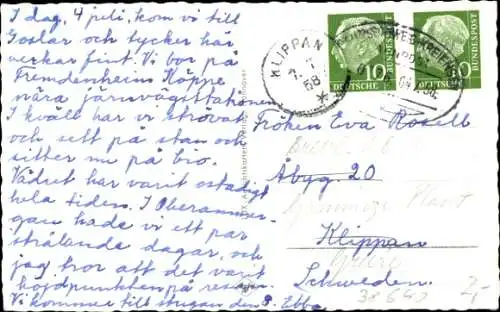 I dag, 4 juli, kom vi till
Goslar och tycker här
verkar fint. Vi bor på
Fremdenheim Köppe
nära järnvägsstationen
I kväll har vi strövat
och sett på stan och
sitter nu på bio.
Vädret har varit ostadigt
hela tiden. I Oberammer-
gau hade vi ett par
strålande dagar, och
jag tror att det varit
höjdpunkten på resan.
Vi kommer till stugan den 8. Ebba
KLIPPAN
7. 7
58
DEUTSCHE
BUNDESPOST
10
BUNDESPOST
Fröken Eva Rosell
Åbyg. 20
Klippan
Schweden